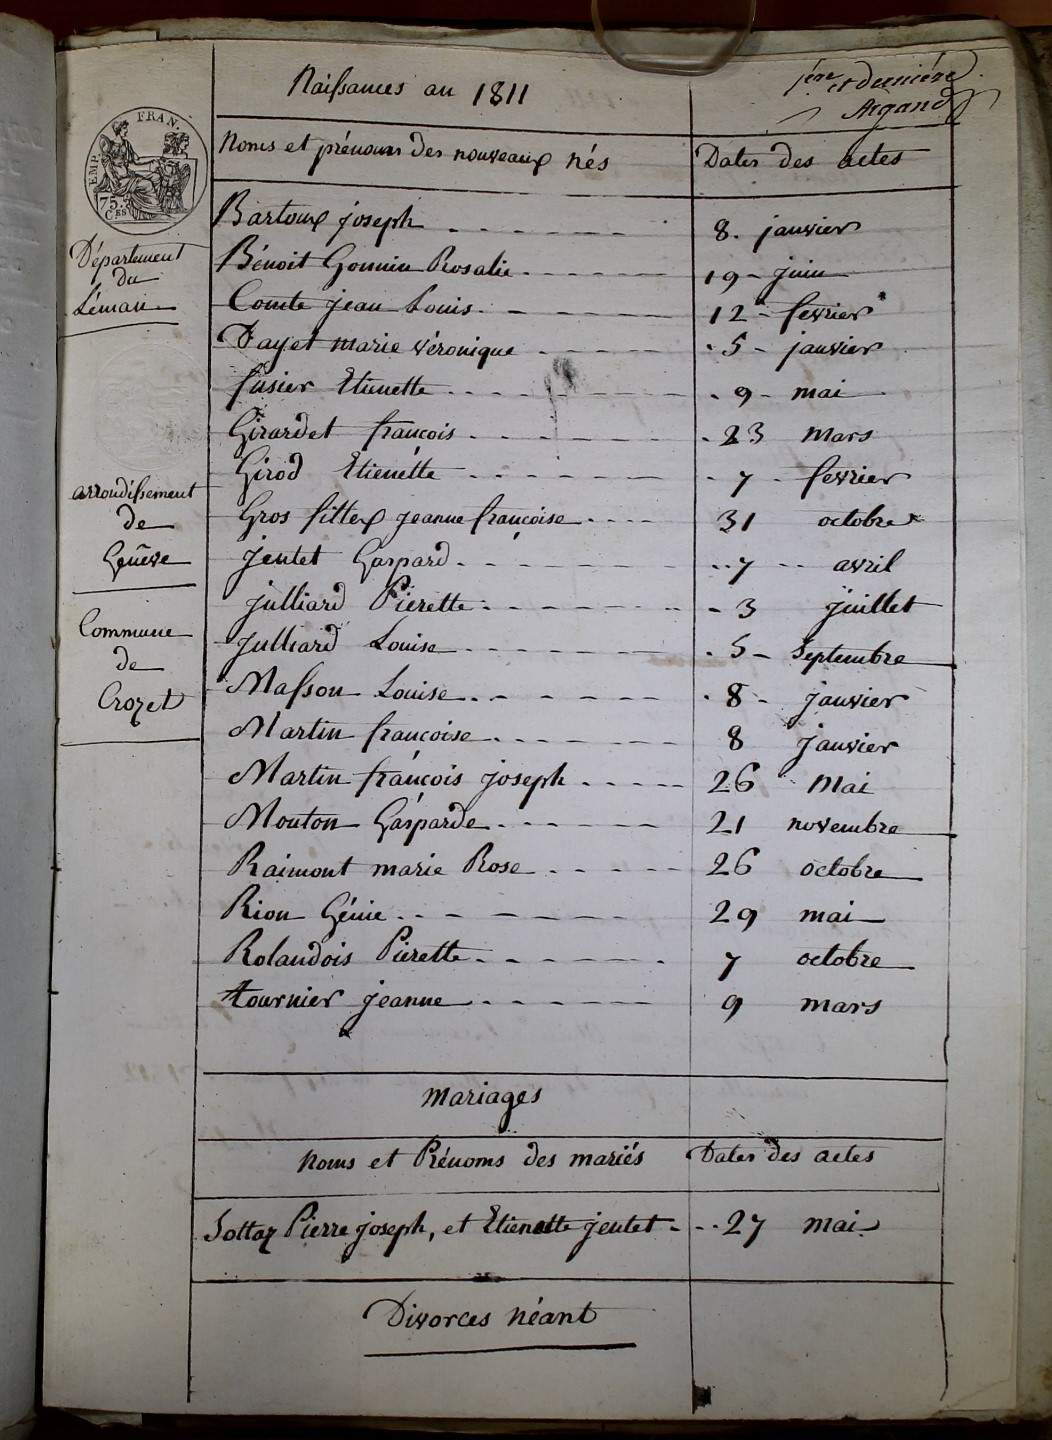 Naissances an 1811
1ère et dernière
Argand
EMP. FRAN.
75.
Ces
Département
du
Léman
arrondissement
de
Genêve
Commune
de
Crozet
Noms et prénoms des nouveaux nés Dates des actes
Bartoux joseph 8. janvier
Bénoit Gounin Rosalie 19 juin
Comte jean Louis 12 fevrier
Dayet marie véronique 5 janvier
fusier Etienette 9 mai
Girardet françois 23 mars
Girod Etienétte 7 fevrier
Gros fillex jeanne françoise 31 octobre
jentet Gaspard 7 avril
julliard Pierette 3 juillet
julliard Louise 5 Septembre
Masson Louise 8 janvier
Martin françoise 8 janvier
Martin françois joseph 26 Mai
Mouton Gasparde 21 novembre
Raimont marie Rose 26 octobre
Rion Génie 29 mai
Rolandois Pierette 7 octobre
tournier jeanne 9 mars
Mariages
Noms et Prénoms des mariés Dates des actes
Sottaz Pierre joseph, et Etienette jentet 27 mai
Divorces néant